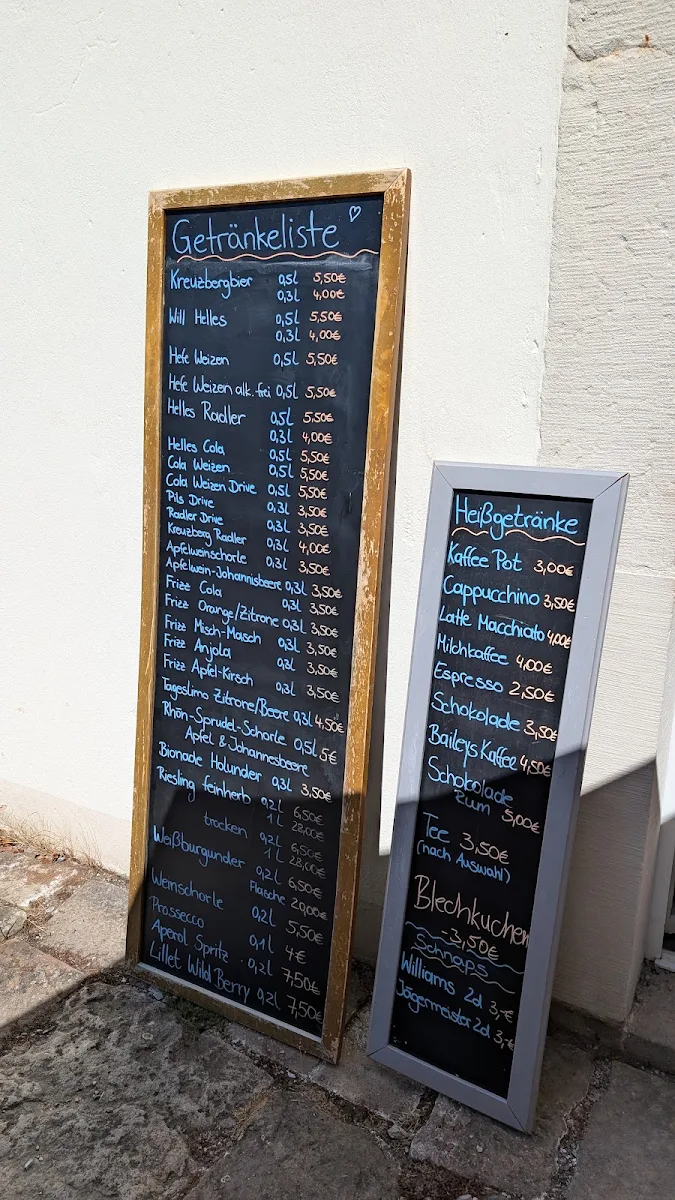 Getränkeliste
Kreuzbergbier 0,5l 5,50€
0,3l 4,00€
Will Helles 0,5l 5,50€
0,3l 4,00€
Hefe Weizen 0,5l 5,50€
Hefe Weizen alk. frei 0,5l 5,50€
Helles Radler 0,5l 5,50€
0,3l 4,00€
Helles Cola 0,5l 5,50€
Cola Weizen 0,5l 5,50€
Cola Weizen Drive 0,5l 5,50€
Pils Drive 0,3l 3,50€
Radler Drive 0,3l 3,50€
Kreuzberg Radler 0,3l 4,00€
Apfelweinschorle 0,3l 3,50€
Apfelwein-Johannisbeere 0,3l 3,50€
Frizz Cola 0,3l 3,50€
Frizz Orange/Zitrone 0,3l 3,50€
Frizz Misch-Masch 0,3l 3,50€
Frizz Anjola 0,3l 3,50€
Frizz Apfel-Kirsch 0,3l 3,50€
Tageslimo Zitrone/Beere 0,3l 4,50€
Rhön-Sprudel-Schorle 0,5l 5€
Apfel & Johannesbeere
Bionade Holunder 0,3l 3,50€
Riesling feinherb 0,2l 6,50€
1l 28,00€
trocken 0,2l 6,50€
1l 28,00€
Weißburgunder 0,2l 6,50€
Flasche 20,00€
Weinschorle 0,2l 5,50€
Prossecco 0,1l 4€
Aperol Spritz 0,2l 7,50€
Lillet Wild Berry 0,2l 7,50€
Heißgetränke
Kaffee Pot 3,00€
Cappucchino 3,50€
Latte Macchiato 4,00€
Milchkaffee 4,00€
Espresso 2,50€
Schokolade 3,50€
Baileys Kaffee 4,50€
Schokolade
Rum 5,00€
Tee 3,50€
(nach Auswahl)
Blechkuchen
-3,50€
Schnaps
Williams 2cl 3,-€
Jägermeister 2cl 3,-€